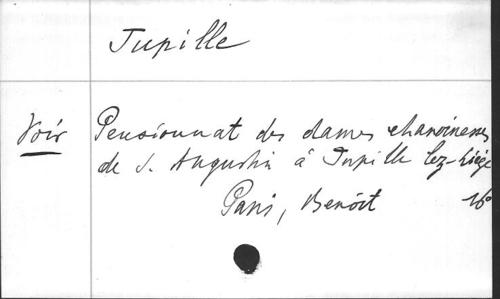 Jupille
Voir Pensionnat des dames chanoinesses
de S. Augustin à Jupille lez-Liège
Paris, Benoît 16°